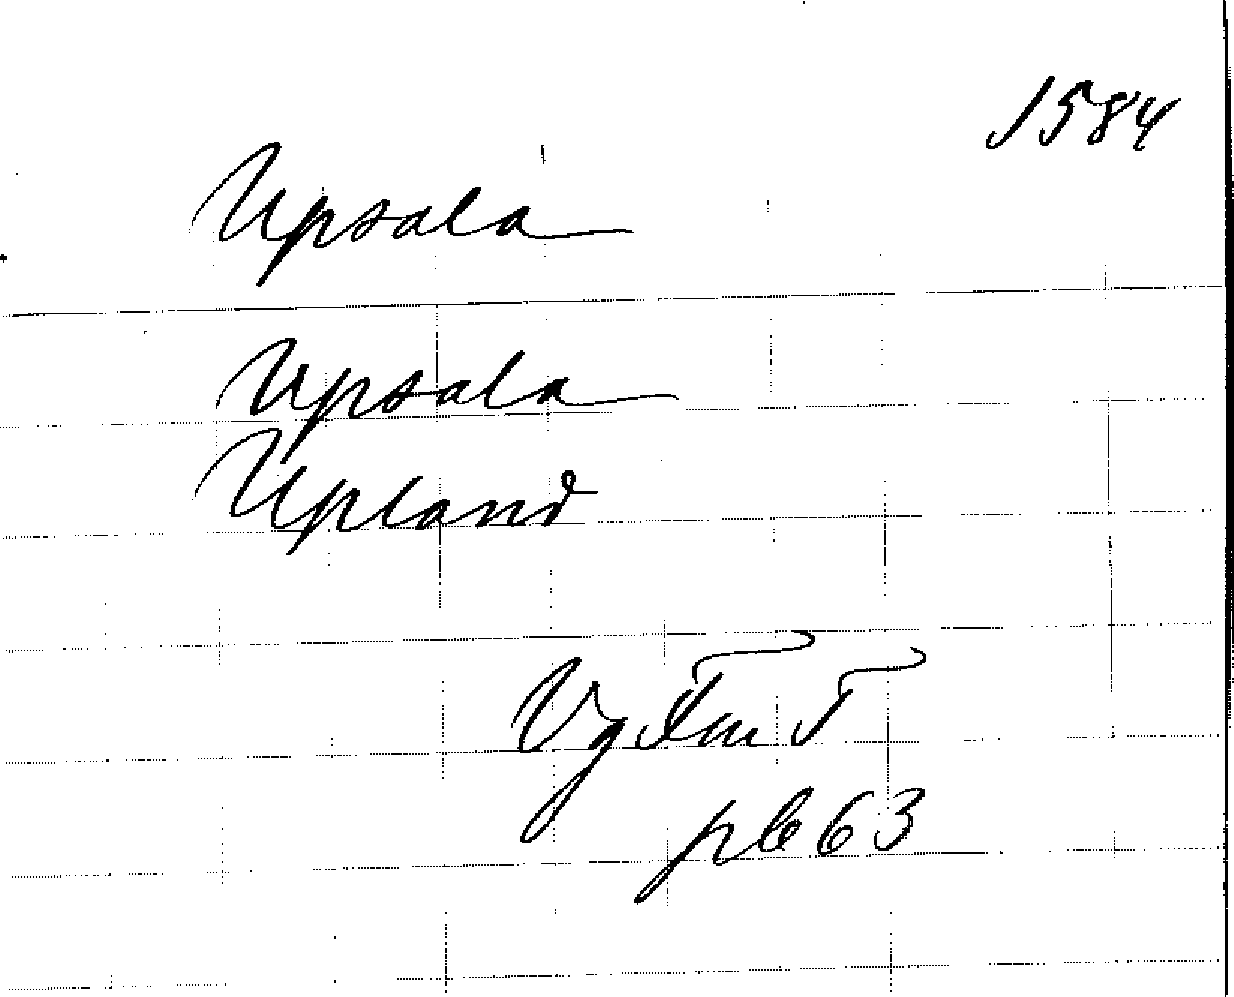 1584
Upsala
Upsala
Upland
Vg Fm T
pb 63